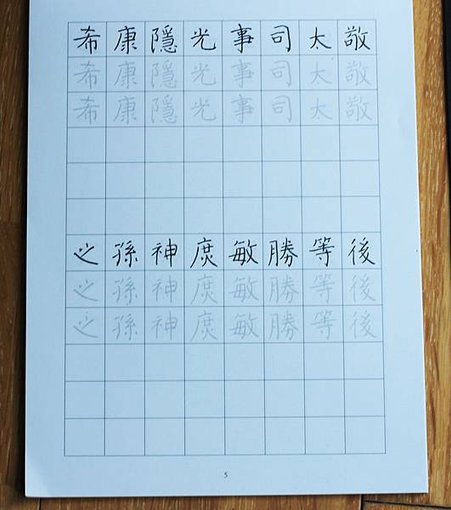 希康隱光事司太敬
希康隱光事司太敬
希康隱光事司太敬
之孫神敏勝等後
之孫神敏勝等後
之孫神敏勝等後
5